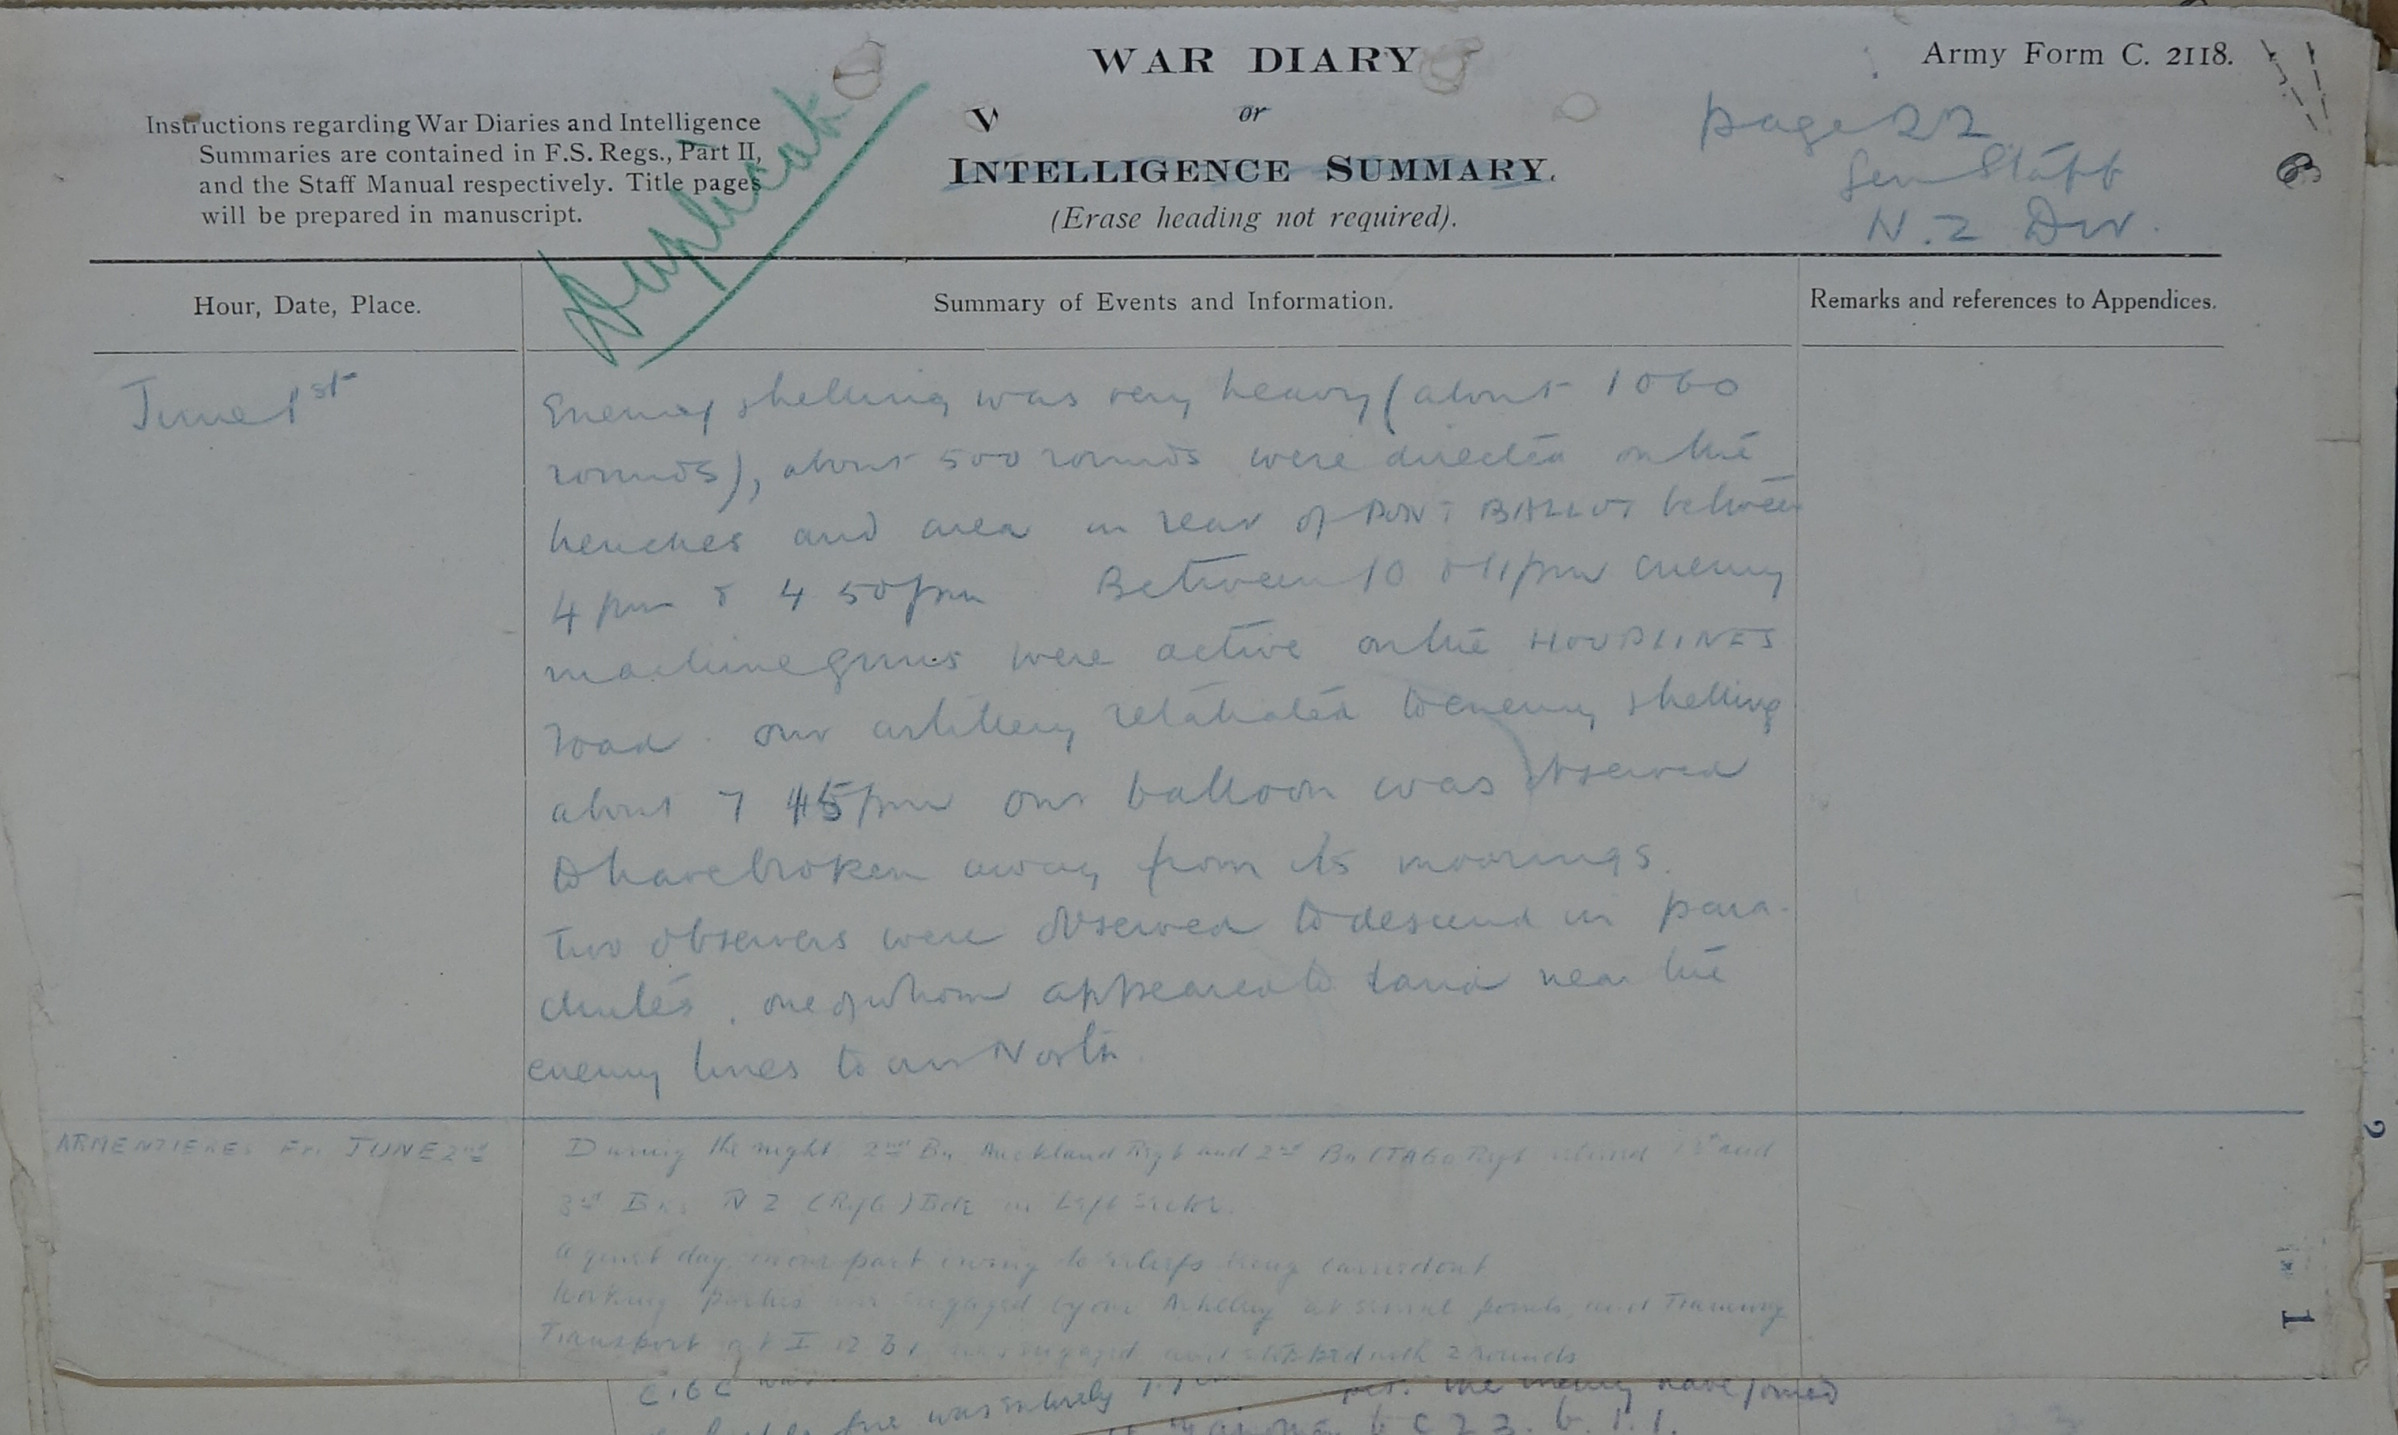 WAR DIARY
or
INTELLIGENCE SUMMARY.
(Erase heading not required).
Army Form C. 2118.
Instructions regarding War Diaries and Intelligence
Summaries are contained in F.S. Regs., Part II,
and the Staff Manual respectively. Title pages
will be prepared in manuscript.
Duplicate
page 22
Gen Staff
N.Z Div.
Hour, Date, Place.
Summary of Events and Information.
Remarks and references to Appendices.
June 1st
Enemy shelling was very heavy (about 1000
rounds), about 500 rounds were directed on the
trenches and area in rear of PONT BALLOT between
4 pm & 4 50 pm Between 10 & 11 pm enemy
machine guns were active on the HOUPLINES
road. Our artillery retaliated to enemy shelling
about 7 45 pm our balloon was observed
to have broken away from its moorings.
Two observers were observed to descend in para-
chutes, one of whom appeared to land near the
enemy lines to our North.
ARMENTIERES Fri JUNE 2nd
During the night 2nd Bn Auckland Regt and 2nd Bn OTAGO Regt relieved 1st and
3rd Bns N Z (Rifle) Bde in Left Sector.
A quiet day on our part owing to reliefs being carried out
Working parties were engaged by our Artillery at several points, and
Transport at I 12 was engaged and stopped with 2 rounds
C.16 C was
fire was entirely 7.7 The enemy have joined
C 23. b. 1. 1.
2
1